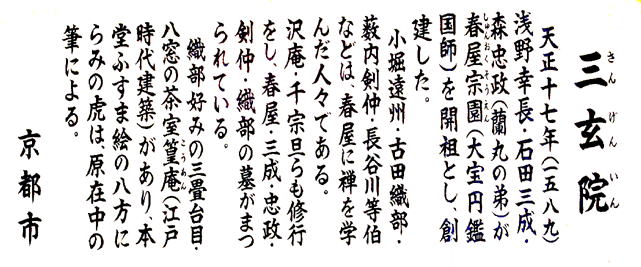 三玄院
さんげんいん
天正十七年(一五八九)
浅野幸長・石田三成・
森忠政(蘭丸の弟)が
春屋宗園(大宝円鑑
しゅんおくそうえん
国師)を開祖とし、創
建した。
小堀遠州・古田織部・
薮内剣仲・長谷川等伯
などは、春屋に禅を学
んだ人々である。
沢庵・千宗旦らも修行
をし、春屋・三成・忠政・
剣仲・織部の墓がまつ
られている。
織部好みの三畳台目・
八窓の茶室篁庵(江戸
こうあん
時代建築)があり、本
堂ふすま絵の八方に
らみの虎は、原在中の
筆による。
京都市